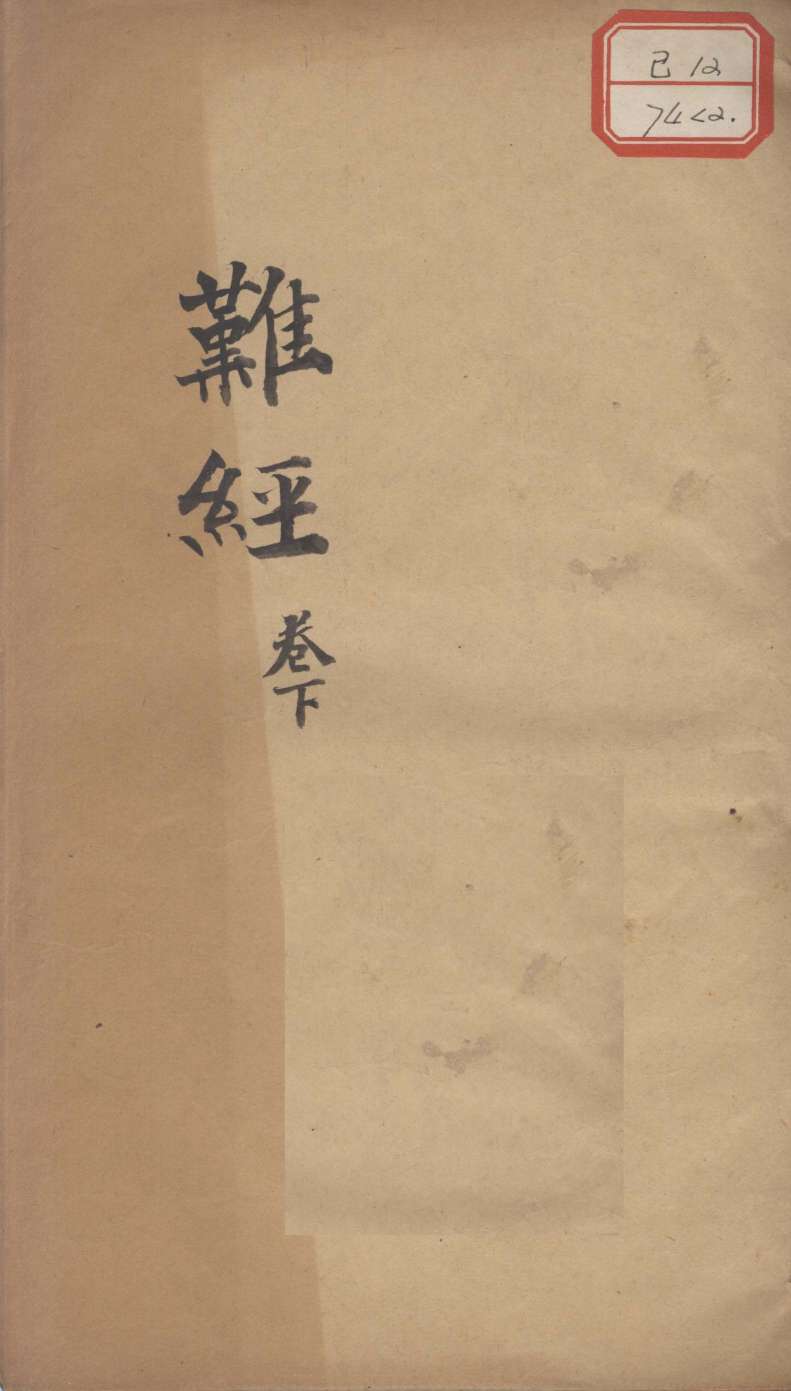 難經
卷下
己 12
74<2.